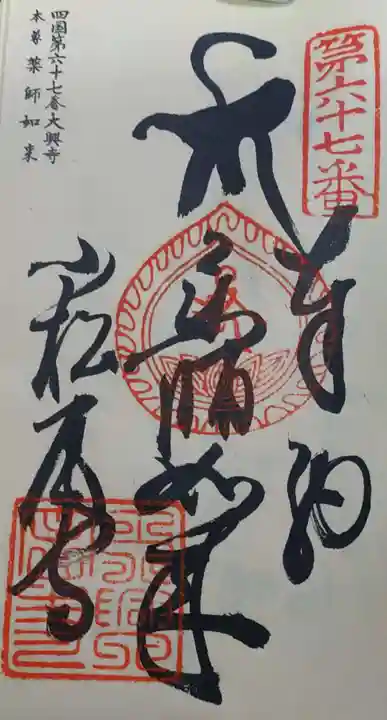 第六十七番
奉納
薬師如来
小松尾寺
四國第六十七番大興寺
本尊 薬師如来